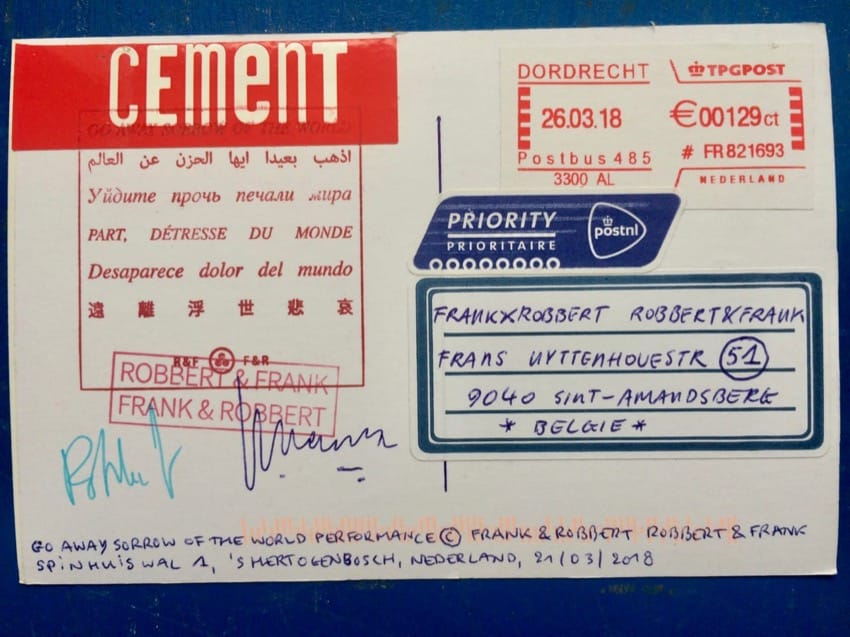 CEMENT
GO AWAY SORROW OF THE WORLD
اذهب بعيدا ايها الحزن عن العالم
Уйдите прочь печали мира
PART, DÉTRESSE DU MONDE
Desaparece dolor del mundo
遠離浮世悲哀
R&F F&R
ROBBERT & FRANK
FRANK & ROBBERT
DORDRECHT
26.03.18
Postbus 485
3300 AL
TPGPOST
€00129ct
# FR821693
NEDERLAND
PRIORITY
PRIORITAIRE
postnl
FRANK&ROBBERT ROBBERT&FRANK
FRANS UYTTENHOVESTR 51
9040 SINT-AMANDSBERG
* BELGIE *
GO AWAY SORROW OF THE WORLD PERFORMANCE © FRANK & ROBBERT ROBBERT & FRANK
SPINHUISWAL 1, 'S HERTOGENBOSCH, NEDERLAND, 21/03/2018